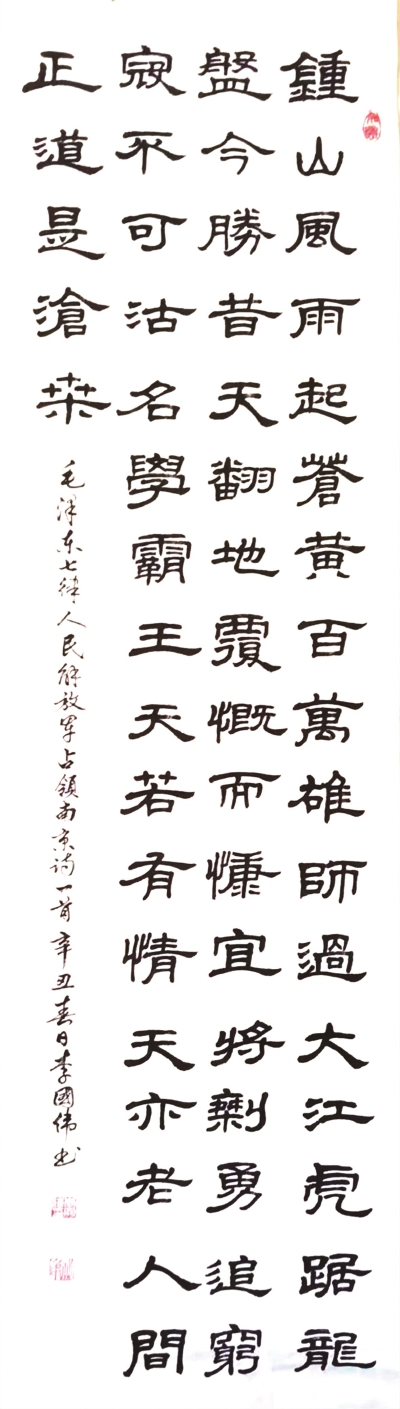 鍾山風雨起蒼黄百萬雄師過大江虎踞龍
盤今勝昔天翻地覆慨而慷宜將剩勇追窮
寇不可沽名學霸王天若有情天亦老人間
正道是滄桒
毛泽东七律人民解放军占領南京诗一首辛丑春日李國伟书